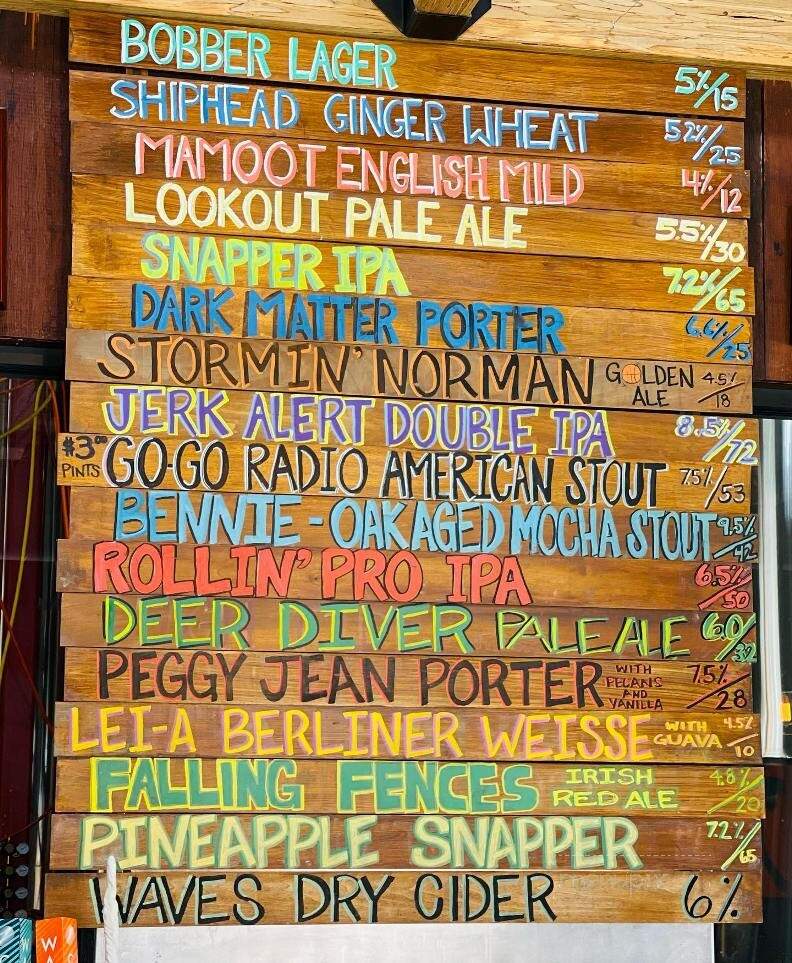 BOBBER LAGER 5%/15
SHIPHEAD GINGER WHEAT 5.2%/25
MAMOOT ENGLISH MILD 4%/12
LOOKOUT PALE ALE 5.5%/30
SNAPPER IPA 7.2%/65
DARK MATTER PORTER 6.6%/25
STORMIN' NORMAN GOLDEN ALE 4.5%/18
JERK ALERT DOUBLE IPA 8.5%/72
$3.00 PINTS GO-GO RADIO AMERICAN STOUT 7.5%/53
BENNIE - OAK AGED MOCHA STOUT 9.5%/42
ROLLIN' PRO IPA 6.5%/50
DEER DIVER PALE ALE 6.0/32
PEGGY JEAN PORTER WITH PECANS AND VANILLA 7.5%/28
LEI-A BERLINER WEISSE WITH GUAVA 4.5%/10
FALLING FENCES IRISH RED ALE 4.8%/20
PINEAPPLE SNAPPER 7.2%/65
WAVES DRY CIDER 6%